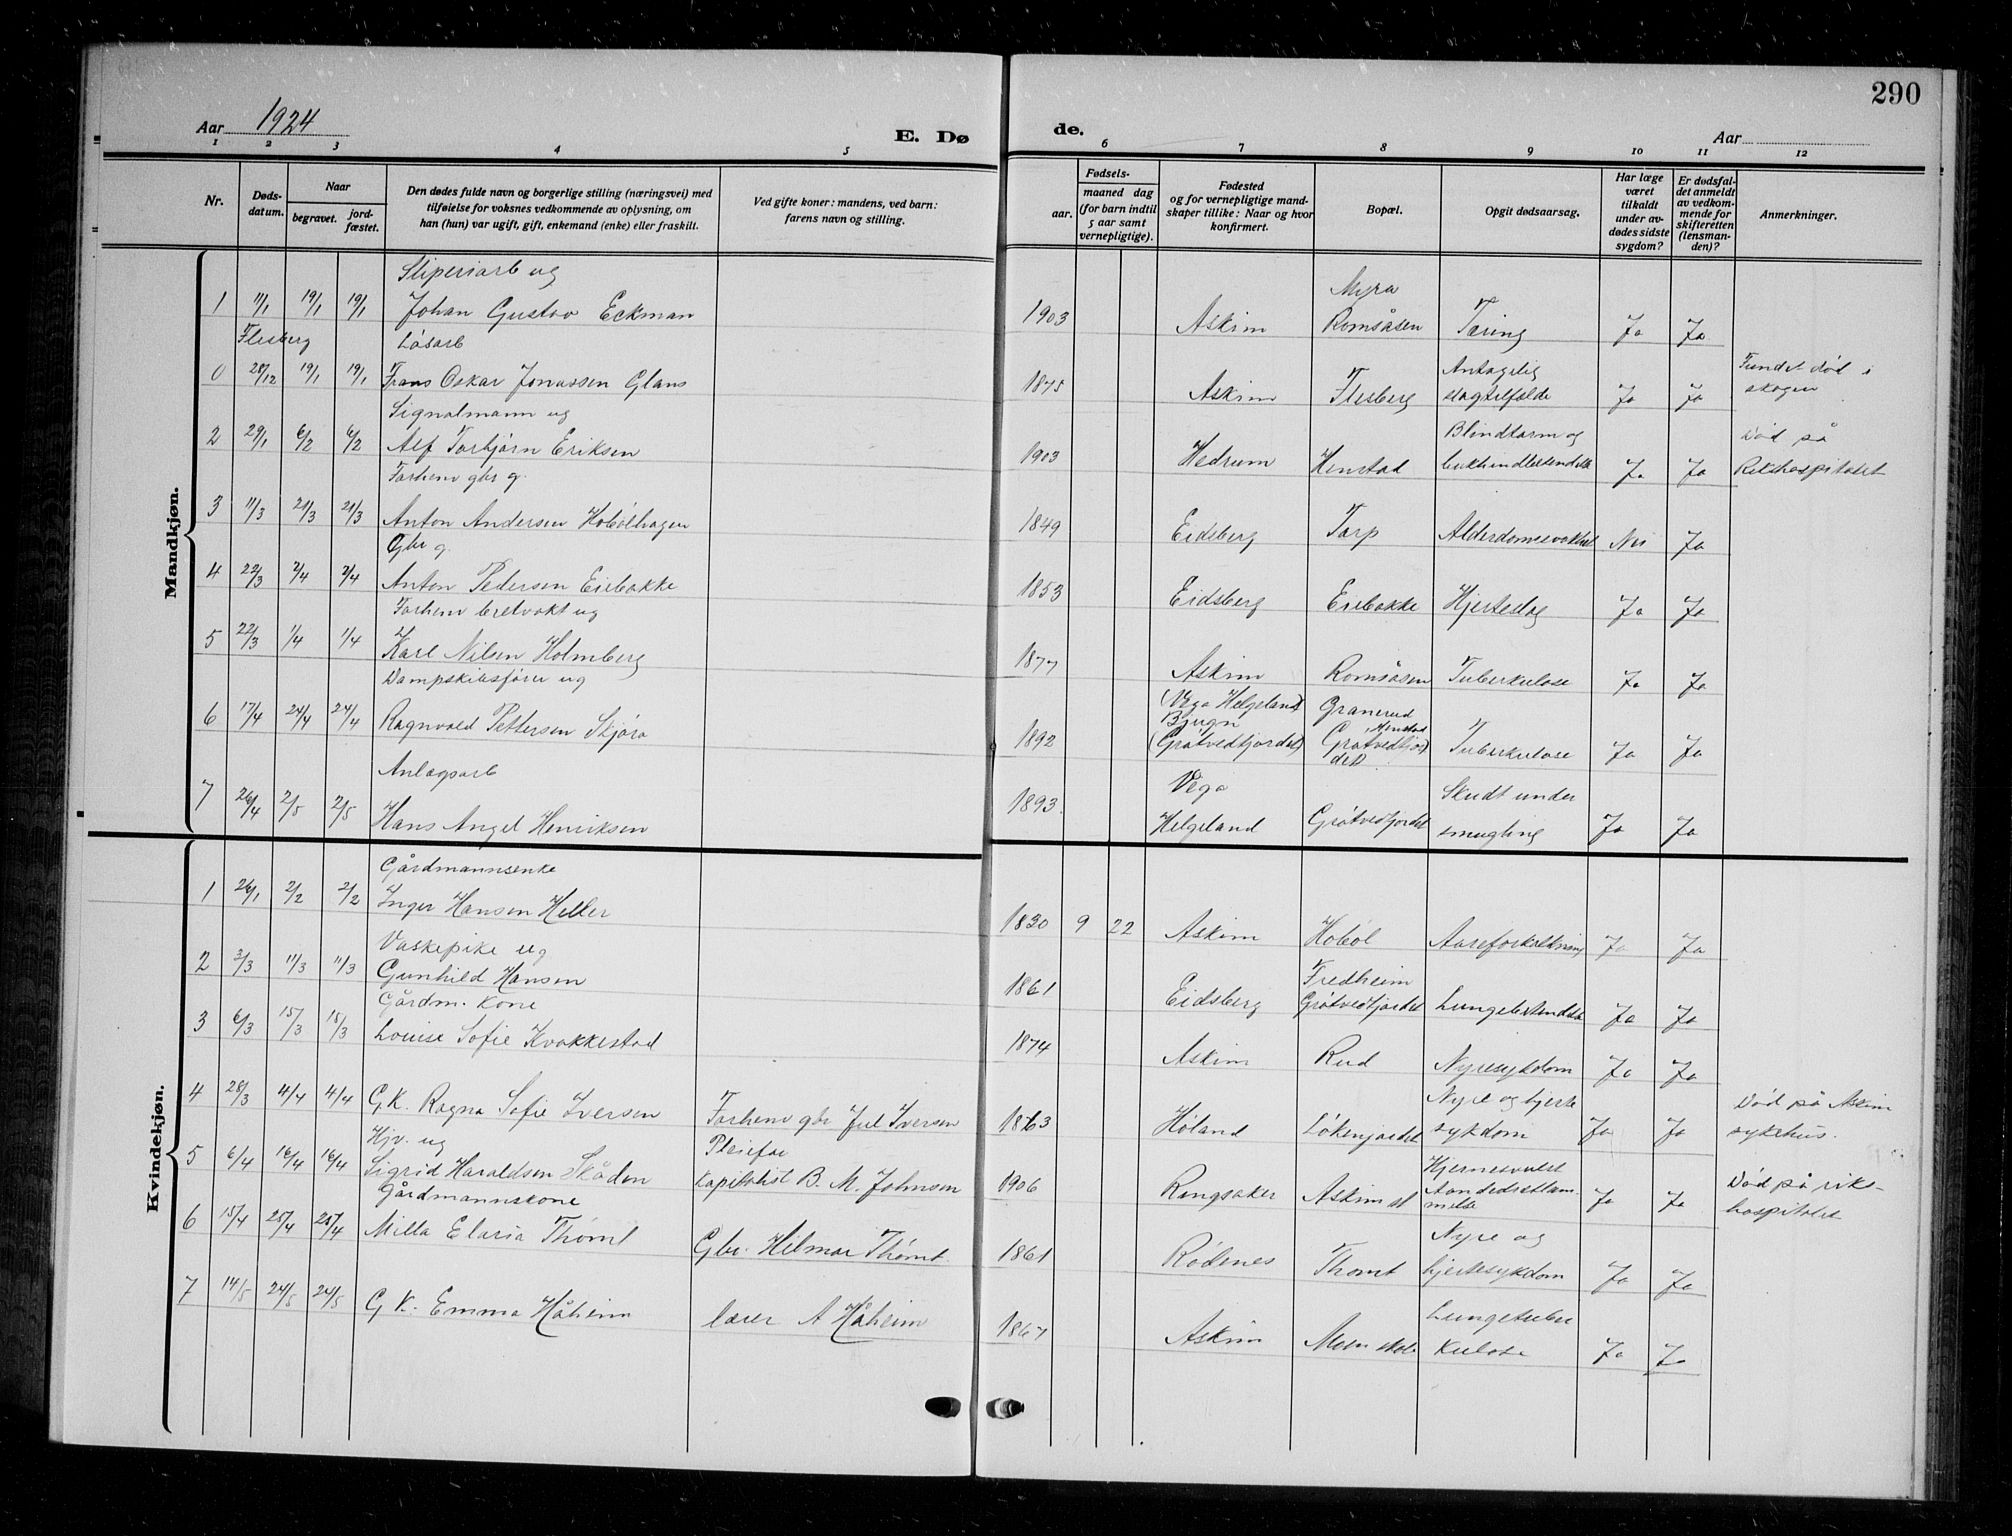 290
Aar 1924
E. Dø
de.
Aar
1 2 3 4 5 6 7 8 9 10 11 12
Nr.
Døds-
datum.
Naar
begravet.
jord-
fæstet.
Den dødes fulde navn og borgerlige stilling (næringsvei) med
tilføielse for voksnes vedkommende av oplysning, om
han (hun) var ugift, gift, enkemand (enke) eller fraskilt.
Ved gifte koner: mandens, ved barn:
farens navn og stilling.
Fødsels-
aar.
maaned dag
(for barn indtil
5 aar samt
vernepligtige).
Fødested
og for vernepligtige mand-
skaper tillike: Naar og hvor
konfirmert.
Bopæl.
Opgit dødsaarsag.
Har læge
været
tilkaldt
under av-
dødes sidste
sygdom?
Er dødsfal-
det anmeldt
av vedkom-
mende for
skifteretten
(lensman-
den)?
Anmerkninger.
Mandkjøn.
Sliperiarb ug Myra
1 11/1 19/1 19/1 Johan Gustav Eckman 1903 Askim Romsåsen Tæring Ja Ja
Flesberg Løsarb Antagelig Fundet død i
0 28/12 19/1 19/1 Frans Oskar Jonassen Glans 1875 Askim Flesberg slagtilfælde Ja Ja skogen
Signalmann ug Blindtarm og Død på
2 29/1 6/2 6/2 Alf Torbjørn Eriksen 1903 Hedrum Henstad bukhindbetendelse Ja Ja Rikshospitalet
Forhenv gbr g.
3 11/3 21/3 21/3 Anton Andersen Hobølhagen 1849 Eidsberg Torp Alderdomsvakhet Nei Ja
Gbr g.
4 22/3 2/4 2/4 Anton Pedersen Eiebakke 1853 Eidsberg Eiebakke Hjerteslag Ja Ja
Forhenv bretvakt ug
5 22/3 1/4 1/4 Karl Nilsen Holmberg 1877 Askim Romsåsen Tuberkulose Ja Ja
Dampskibsfører ug (Vega Helgeland) Granerud
Bjugn Henstad
6 17/4 24/4 24/4 Ragnvald Pettersen Skjøra 1892 (Grøtvedtjordet) Grøtvedtjor Tuberkulose Ja Ja
det)
Anlægsarb Vega Skudt under
7 26/4 2/5 2/5 Hans Angel Henriksen 1893 Helgeland Grøtvedtjordet smugling Ja Ja
Kvindekjøn.
Gårdmannsenke
1 26/1 2/2 2/2 Inger Hansen Heller 1830 9 22 Askim Hobøl Aareforkalkning Ja Ja
Vaskepike ug Fredheim
2 3/3 11/3 11/3 Gunhild Hansen 1861 Eidsberg Grøtvedtjordet Lungebetendelse Ja Ja
Gårdm. kone
3 6/3 15/3 15/3 Louise Sofie Kvakkestad 1874 Askim Rud Nyresykdom Ja Ja
Nyre og hjerte Død på Askim
4 28/3 4/4 4/4 G. K. Ragna Sofie Iversen Forhenv gbr Jul Iversen 1863 Høland Løkenjordet sykdom Ja Ja sykehus.
Hjv. ug Pleiefar Hjernesvulst Død på riks-
5 6/4 16/4 16/4 Sigrid Haraldsen Skåden Kapitalist B. M. Johnsen 1906 Ringsaker Askim st Aandedrætslam- Ja Ja hospitalet
melse
Gårdmannskone Nyre og
6 15/4 25/4 25/4 Milla Elaria Thømt Gbr. Hilmar Thømt. 1861 Rødenes Thømt hjertesykdom Ja Ja
Lungetuber
7 14/5 24/5 24/5 G K. Emma Håheim lærer A Håheim 1867 Askim skole kulose Ja Ja